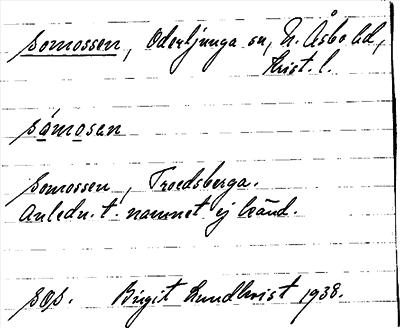 Somossen, Oderljunga sn, N. Åsbo hd,
Krist. l.
sómosan
Somossen, Troedsberga.
Anledn. t. namnet ej känd.
sop. Birgit Lundkvist 1938.